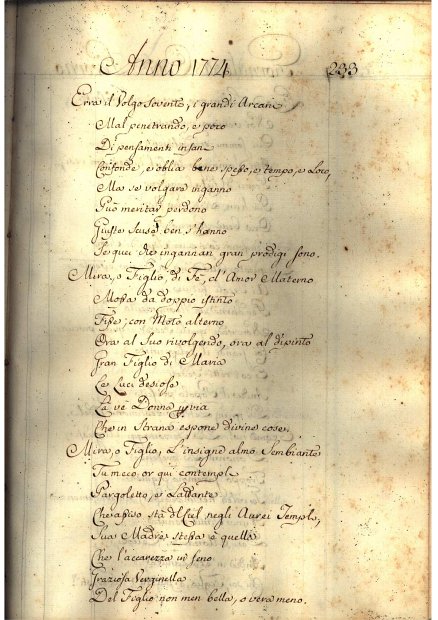 Anno 1774. 233
Erra il Volgo sovente, i grandi Arcani
Mal penetrando, e poco
Di pensamenti insani
Confonde, e oblia bene spesso, e tempo, e Loco,
Ma se volgare inganno
Può meritar perdono
Giuste scuse ben s'hanno
Se quei che ingannan gran prodigi sono.
Mira, o Figlio, di Fe, d'Amor Materno
Mossa da doppio istinto
Fisse, con Moto alterno
Ora al Suo rivolgendo, ora al dipinto
Gran Figlio di Maria
Le Luci desiose
La ve Donna
Che in Strana espone divine cose.
Mira, o Figlio, L'insigne almo Sembiante
Tu meco or qui contempla
Pargoletto, e Lattante
Che assiso stà del Ciel negli Aurei Templi,
Sua Madre stessa è quella
Che l'accarezza in seno
Graziosa Verginella
Del Figlio non men bella, o vera meno.